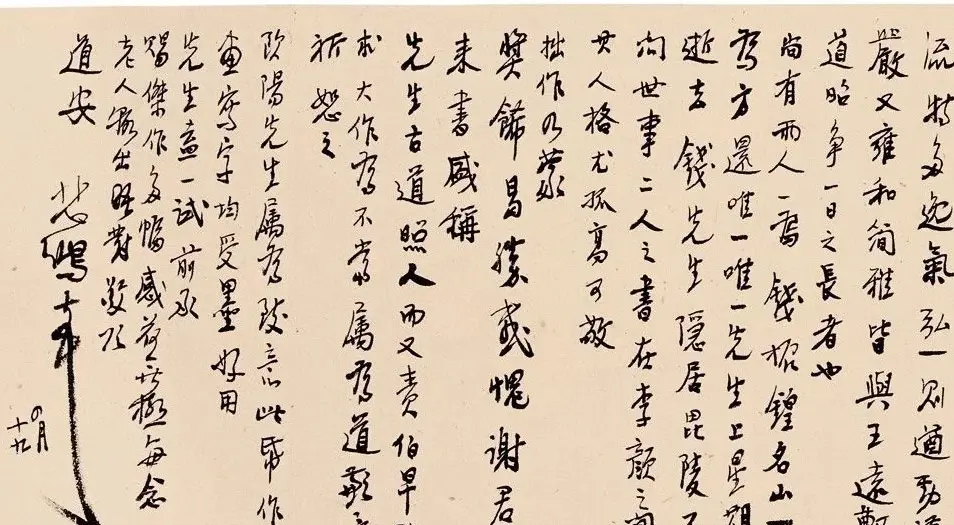 流特多逸氣弘一則遒勁
嚴又雍和簡雅皆與王遠
道昭爭一日之長者也
尚有兩人一為錢振鍠名山一
為方還唯一唯一先生上星期
逝去錢先生隱居毘陵不
問世事二人之書在李顏之間
其人格尤孤高可敬
拙作乃蒙
獎飾曷勝感愧謝君
来書感稱
先生古道照人而又責伯早
求大作為不當屬為道歉
祈恕之
歐陽先生屬為致意此帋作
畫寫字均受墨好用
先生盍一試前承
賜傑作多幅感荷無極每念
老人輒出晤對敬頌
道安
悲鴻
四月
十九